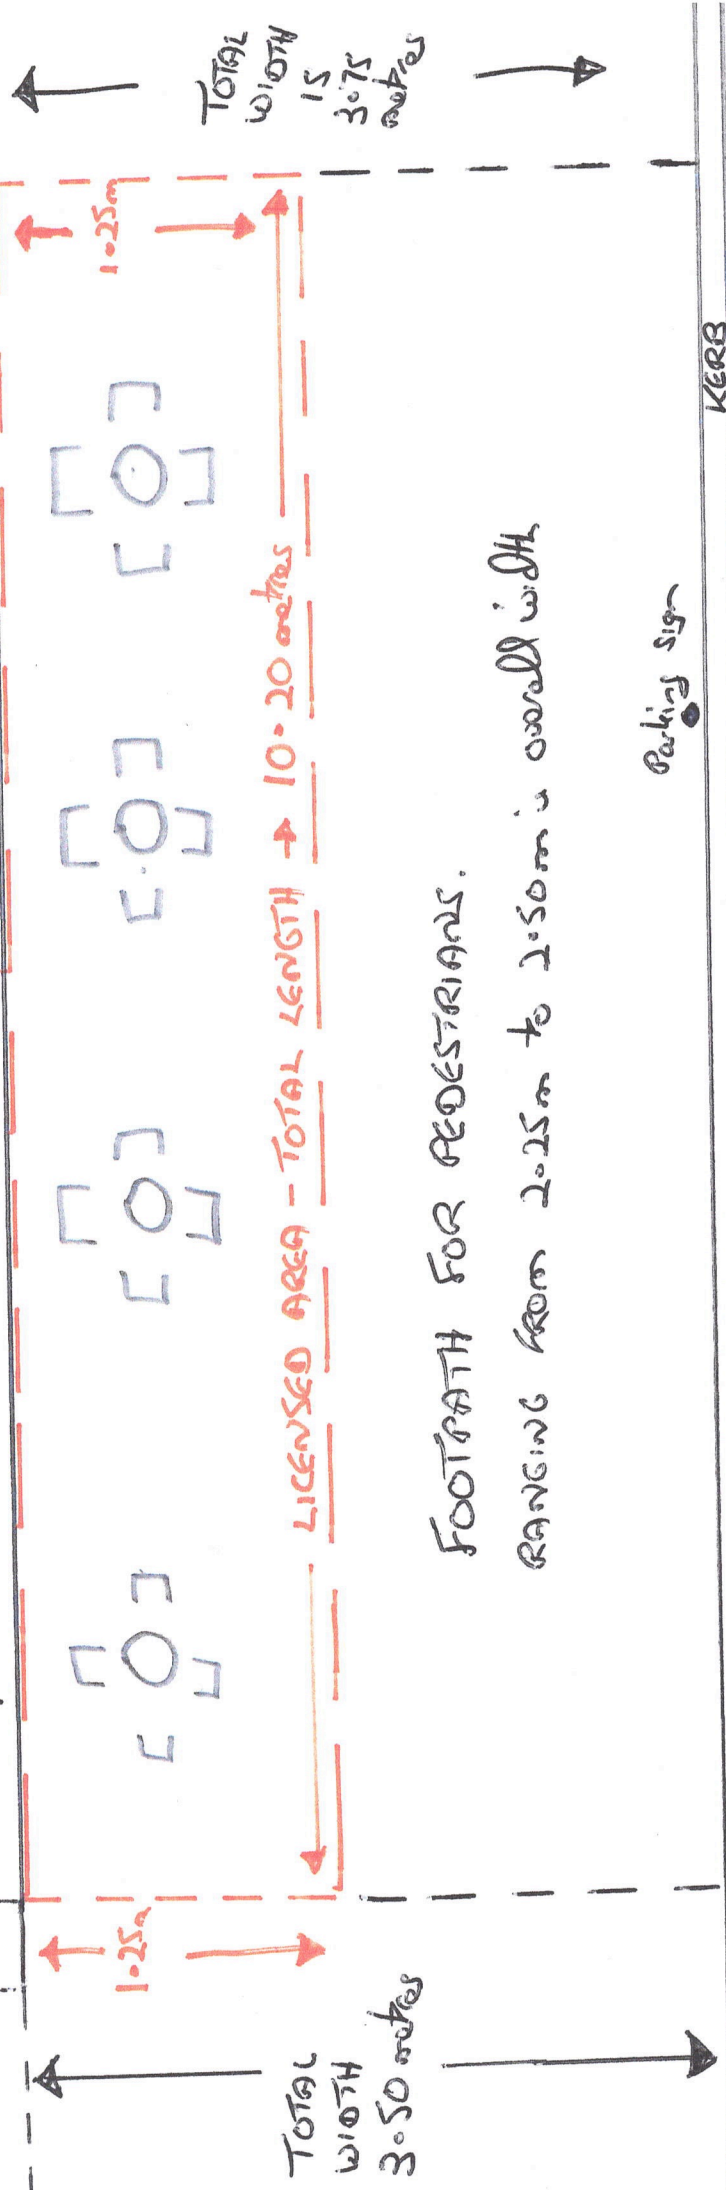 TOTAL
WIDTH
IS
3.75
metres
1.25m
LICENSED AREA - TOTAL LENGTH → 10.20 metres
1.25m
TOTAL
WIDTH
3.50 metres
FOOTPATH FOR PEDESTRIANS.
RANGING FROM 2.25m to 2.50m in overall width
Parking Sign
KERB